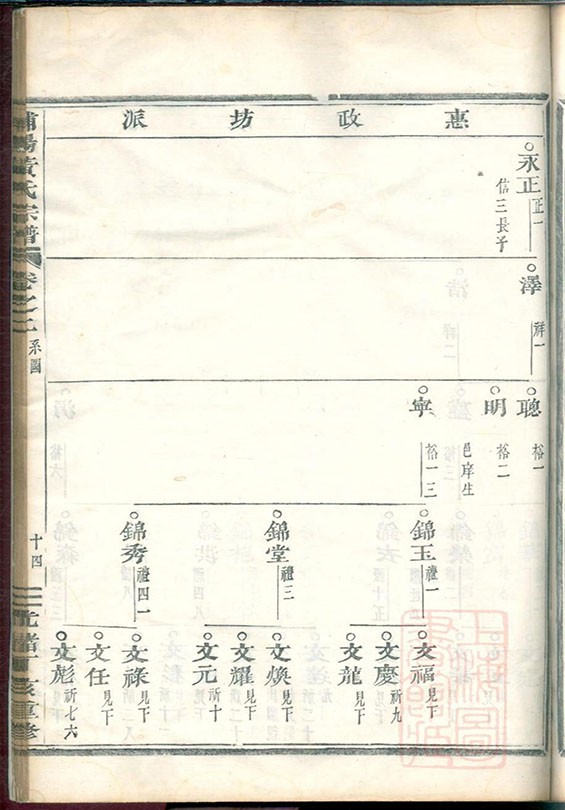 惠政坊派
永正 正一
信三長子
澤 祥一
聰 裕一
明 裕二
邑庠生
寧 裕一三
錦玉 禮一
錦堂 禮三
錦秀 禮四一
文福 見下
文慶 祈九
文龍 見下
文煥 見下
文耀 見下
文元 祈十
文祿 見下
文任 見下
文彪 祈七六
浦陽黃氏宗譜 卷之二 系圖
十四
光緒丁亥重修